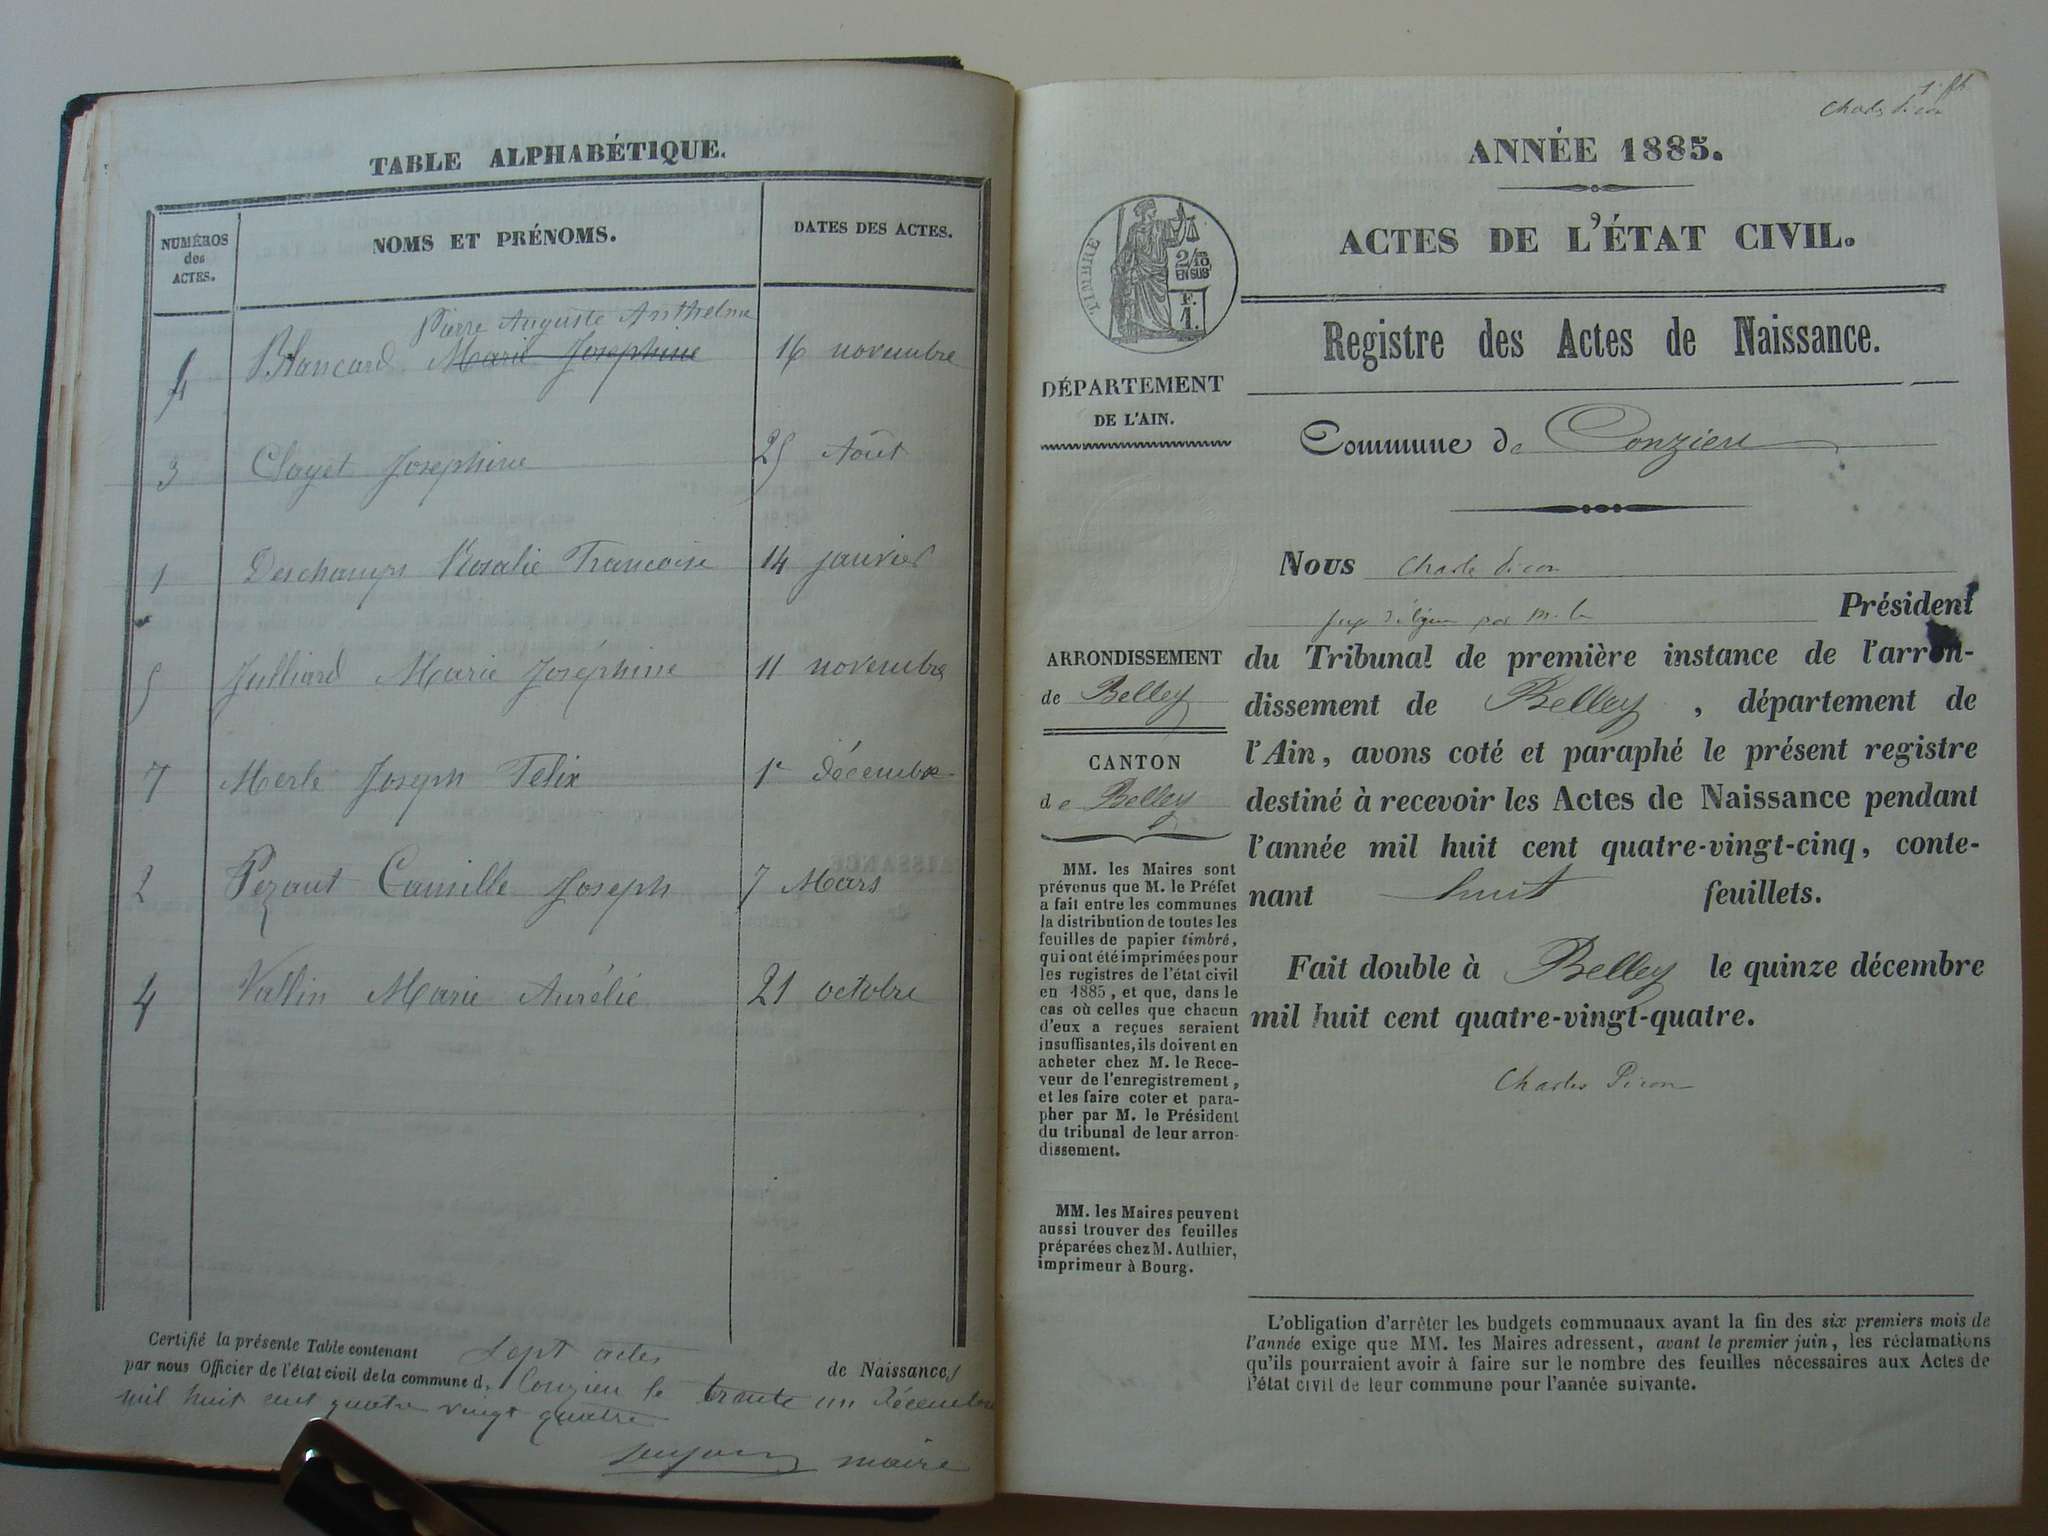 TABLE ALPHABÉTIQUE.
NUMÉROS des ACTES.
NOMS ET PRÉNOMS.
DATES DES ACTES.
Pierre Auguste Anthelme
Blancard Marie Josephine 16 novembre
3 Clayet Josephine 25 Août
1 Deschamps Rosalie Francoise 14 janvier
5 Julliard Marie Joséphine 11 novembre
7 Merle Joseph Felix 1er décembre
2 Pezant Camille Joseph 7 Mars
4 Vallin Marie Aurélie 21 octobre
Certifié la présente Table contenant sept actes de Naissances
par nous Officier de l'état civil de la commune d. Conzieu le trente un Décembre
mil huit cent quatre vingt quatre
maire
Charles Picon
ANNÉE 1885.
ACTES DE L'ÉTAT CIVIL.
TIMBRE
2/10
EN SUS
F.
1.
Registre des Actes de Naissance.
DÉPARTEMENT
DE L'AIN.
Commune de Conzieu
Nous Charles Picon
juge délégué par M. le Président
du Tribunal de première instance de l'arron-
dissement de Belley, département de
l'Ain, avons coté et paraphé le présent registre
destiné à recevoir les Actes de Naissance pendant
l'année mil huit cent quatre-vingt-cinq, conte-
nant huit feuillets.
Fait double à Belley le quinze décembre
mil huit cent quatre-vingt-quatre.
Charles Picon
ARRONDISSEMENT
de Belley
CANTON
de Belley
MM. les Maires sont
prévenus que M. le Préfet
a fait entre les communes
la distribution de toutes les
feuilles de papier timbré,
qui ont été imprimées pour
les registres de l'état civil
en 1885, et que, dans le
cas où celles que chacun
d'eux a reçues seraient
insuffisantes, ils doivent en
acheter chez M. le Rece-
veur de l'enregistrement,
et les faire coter et para-
pher par M. le Président
du tribunal de leur arron-
dissement.
MM. les Maires peuvent
aussi trouver des feuilles
préparées chez M. Authier,
imprimeur à Bourg.
L'obligation d'arrêter les budgets communaux avant la fin des six premiers mois de
l'année exige que MM. les Maires adressent, avant le premier juin, les réclamations
qu'ils pourraient avoir à faire sur le nombre des feuilles nécessaires aux Actes de
l'état civil de leur commune pour l'année suivante.